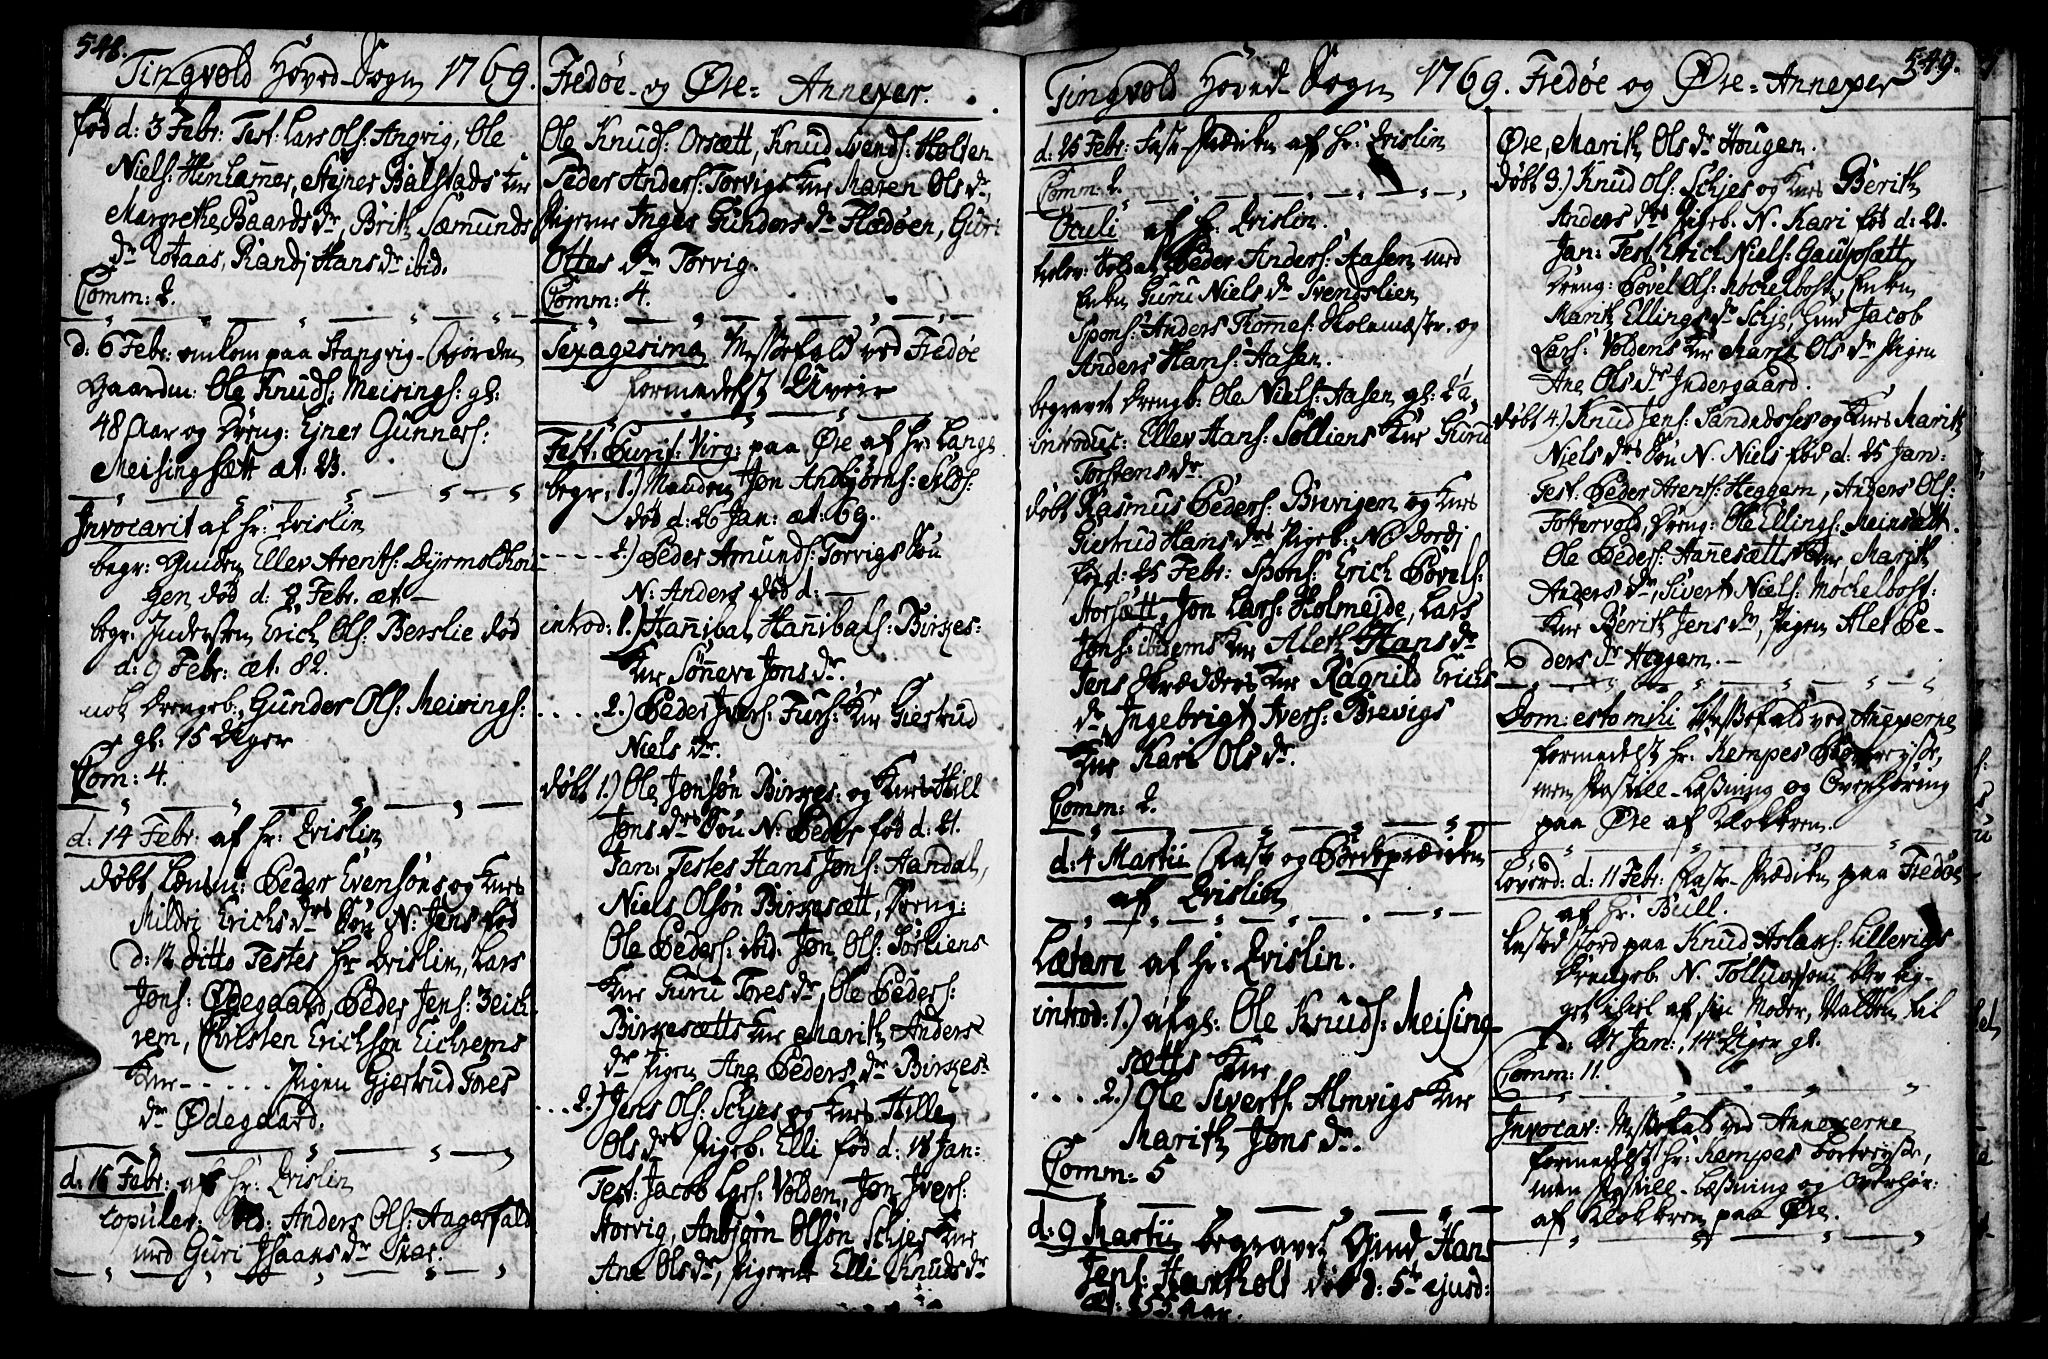 548.
Tingvold Hoved-Sogn 1769.
fød d: 3 Febr: Test: Lars Ols: Angvig, Ole
Niels: Henhamer, Stejner Balstads Kne
Margrethe Baards dr, Brit Sæmunds
dr Rotaas, Randj Hans dr ibid.
Comm: 2.
d: 6 Febr: omkom paa Stangvig-Fjorden
Gaardm: Ole Knuds: Meisings: gl:
48 Aar og Dreng: Ejner Gunners:
Meisingsætt æt: 23.
Invocavit af hr: Qvislin
begr: Enken Ellev Arents: Dyrmoldhou-
gen død d: 2 Febr. æt: —
begr: Indersten Erich Ols: Berslie død
d: 9 Febr: æt. 82.
nok Drengeb. Gunder Ols: Meisings:
gl: 15 Uger
Com: 4.
d: 14 Febr: af hr: Qvislin
døbt Peder Evensøns og Knes
Mildri Erichs drs Søn N: Jens fød
d: 12 ditto Testes hr Qvislin, Lars
Jons: Ødegaard, Peder Jens: Zeich-
rem, Christen Erichsøn Eichrems
Kne - - - - - Pigen Gjertrud Tores
dr Ødegaard.
d: 16 Febr: af hr: Qvislin
copuler: Anders Ols: Aagersfald
med Guri Isaacs dr
Fredøe og Øre- Annexer.
Ole Knuds: Orsætt, Knud Svends: Holten
Peder Anders: Torvigs Kne Maren Ols dr,
Pigerne Inger Gunders dr Flædøen, Guri
Ottes dr Torvig.
Comm: 4.
Sexagesima Messefald ved Fredøe
formedelst Uveir
Fest: Purif: Virg: paa Øre af hr: Lange
begr: 1.) Manden Jon Anbjørns:
død d: 26 Jan: æt: 69.
- - - - 2.) Peder Amunds: Torvigs Søn
N: Anders død d: —
introd: 1.) Hannibal Hannibals: Birkes:
Kne Sønneve Jons dr.
. . . . . 2.) Peder Ivers: Furs: Kne Giertrud
Niels dr.
døbt 1.) Ole Jonsøn Birkes: og Knes Hill
Jons drs Søn N: Peder fød d: 21.
Jan: Testes Hans Jons: Aandal,
Niels Olsøn Birkesætt, Dreng:
Ole Peders: ibid. Jon Ols: Sørliens
Kne Guru Tores dr, Ole Peders:
Birkesætts Kne Marit Anders
dr Pigen Ane Peders dr Birkes:
... 2.) Jens Ols: Schjes og Knes Hille
Ols drs Pigeb. Elli fød d: 18 Jan:
Test: Jacob Lars: Volden, Jon Ivers:
Storvig, Anbjørn Olsøn Schjes Kne
Ane Ols dr, Pigerne Elli Knuds dr
549.
Tingvold Hoved-Sogn 1769. Fredøe og Øre-Annexer
d: 25 Febr: Faste-Prædiken af hr: Qvislin
Comm: 2.
Oculi af hr. Qvislin.
trolov: Soldat Peder Anders: Aasen med
Enken Guru Niels dr Svendslien
Spons: Anders Tommes: Holemæstr. og
Anders Hans: Aasen.
begravet Drengb: Ole Niels: Aasen gl:
introduc: Ellev Hans: Solliens Kne Guru
Torstens dr.
døbt Rasmus Peders: Brevigen og Knes
Giertrud Hans drs Pigeb: N. Dordj
fød d: 25 Febr: Spons: Erich Povels:
Storsætt, Jon Lars: Holmejde, Lars
Jons: ibidems Kne Aleth Hans dr
Jens Skræders Kne Ragnild Erichs
dr Ingebrigt Ivers: Brevigs
Kne Kari Ols dr.
Comm: 2.
d: 4 Martii Faste og Bededprædiken
af Qvislin
Lætare af hr: Qvislin.
introd: 1.) afgl: Ole Knuds: Meising-
sætts Kne
. . . . 2.) Ole Siverts: Almvigs Kne
Marith Jons dr.
Comm: 5
d: 9 Martii begravet Hans
Jens: Hartholt død d: 5te ejusd:
æt: 55 Aar.
Øre, Marith Ols dr Hougen.
døbt 3.) Knud Ols: Schjes og Knes Berith
Anders drs Pigeb. N. Kari fød d: 21.
Jan: Test. Erich Niels: Gaupsætt,
Dreng: Povel Ols: Mochelbost, Enken
Marit Ellings dr Schje, Jacob
Lars: Voldens Kne Marit Ols dr Pigen
Ane Ols dr Indergaard.
døbt 4.) Knud Jens: og Knes Marit
Niels drs Søn N. Niels fød d: 25 Jan:
Test: Peder Arents: Heggem, Anders Ols:
Tøttervold, Dreng: Ole Ellings: Meinsætt.
Ole Peders: Hannesætts Kne Marit
Anders dr, Sivert Niels: Mochelbost:
Kne Berith Jens dr, Pigen Alet Pe-
ders dr Heggem.
Dom: esto mihi Messefald ved Annexerne
formedelst hr: Kempes
men Postill-Læsning og Overhøring
paa Øre af Klokkeren.
Løverd: d: 11 Febr: Faste-Prædiken paa Fredøe
af hr: Bull.
kasted Jord paa Knud Aslaks: Lillevigs
Drengeb. N. Tollev som blev lig-
get ihiel af sin Moder, Malene til
d: 27 Jan: 14 Uger gl.
Comm: 11.
Invocav: Messefald ved Annexerne
formedelst hr: Kempes Bortreyse,
men Postill-Læsning og Overhør:
af Klokkeren paa Øre.